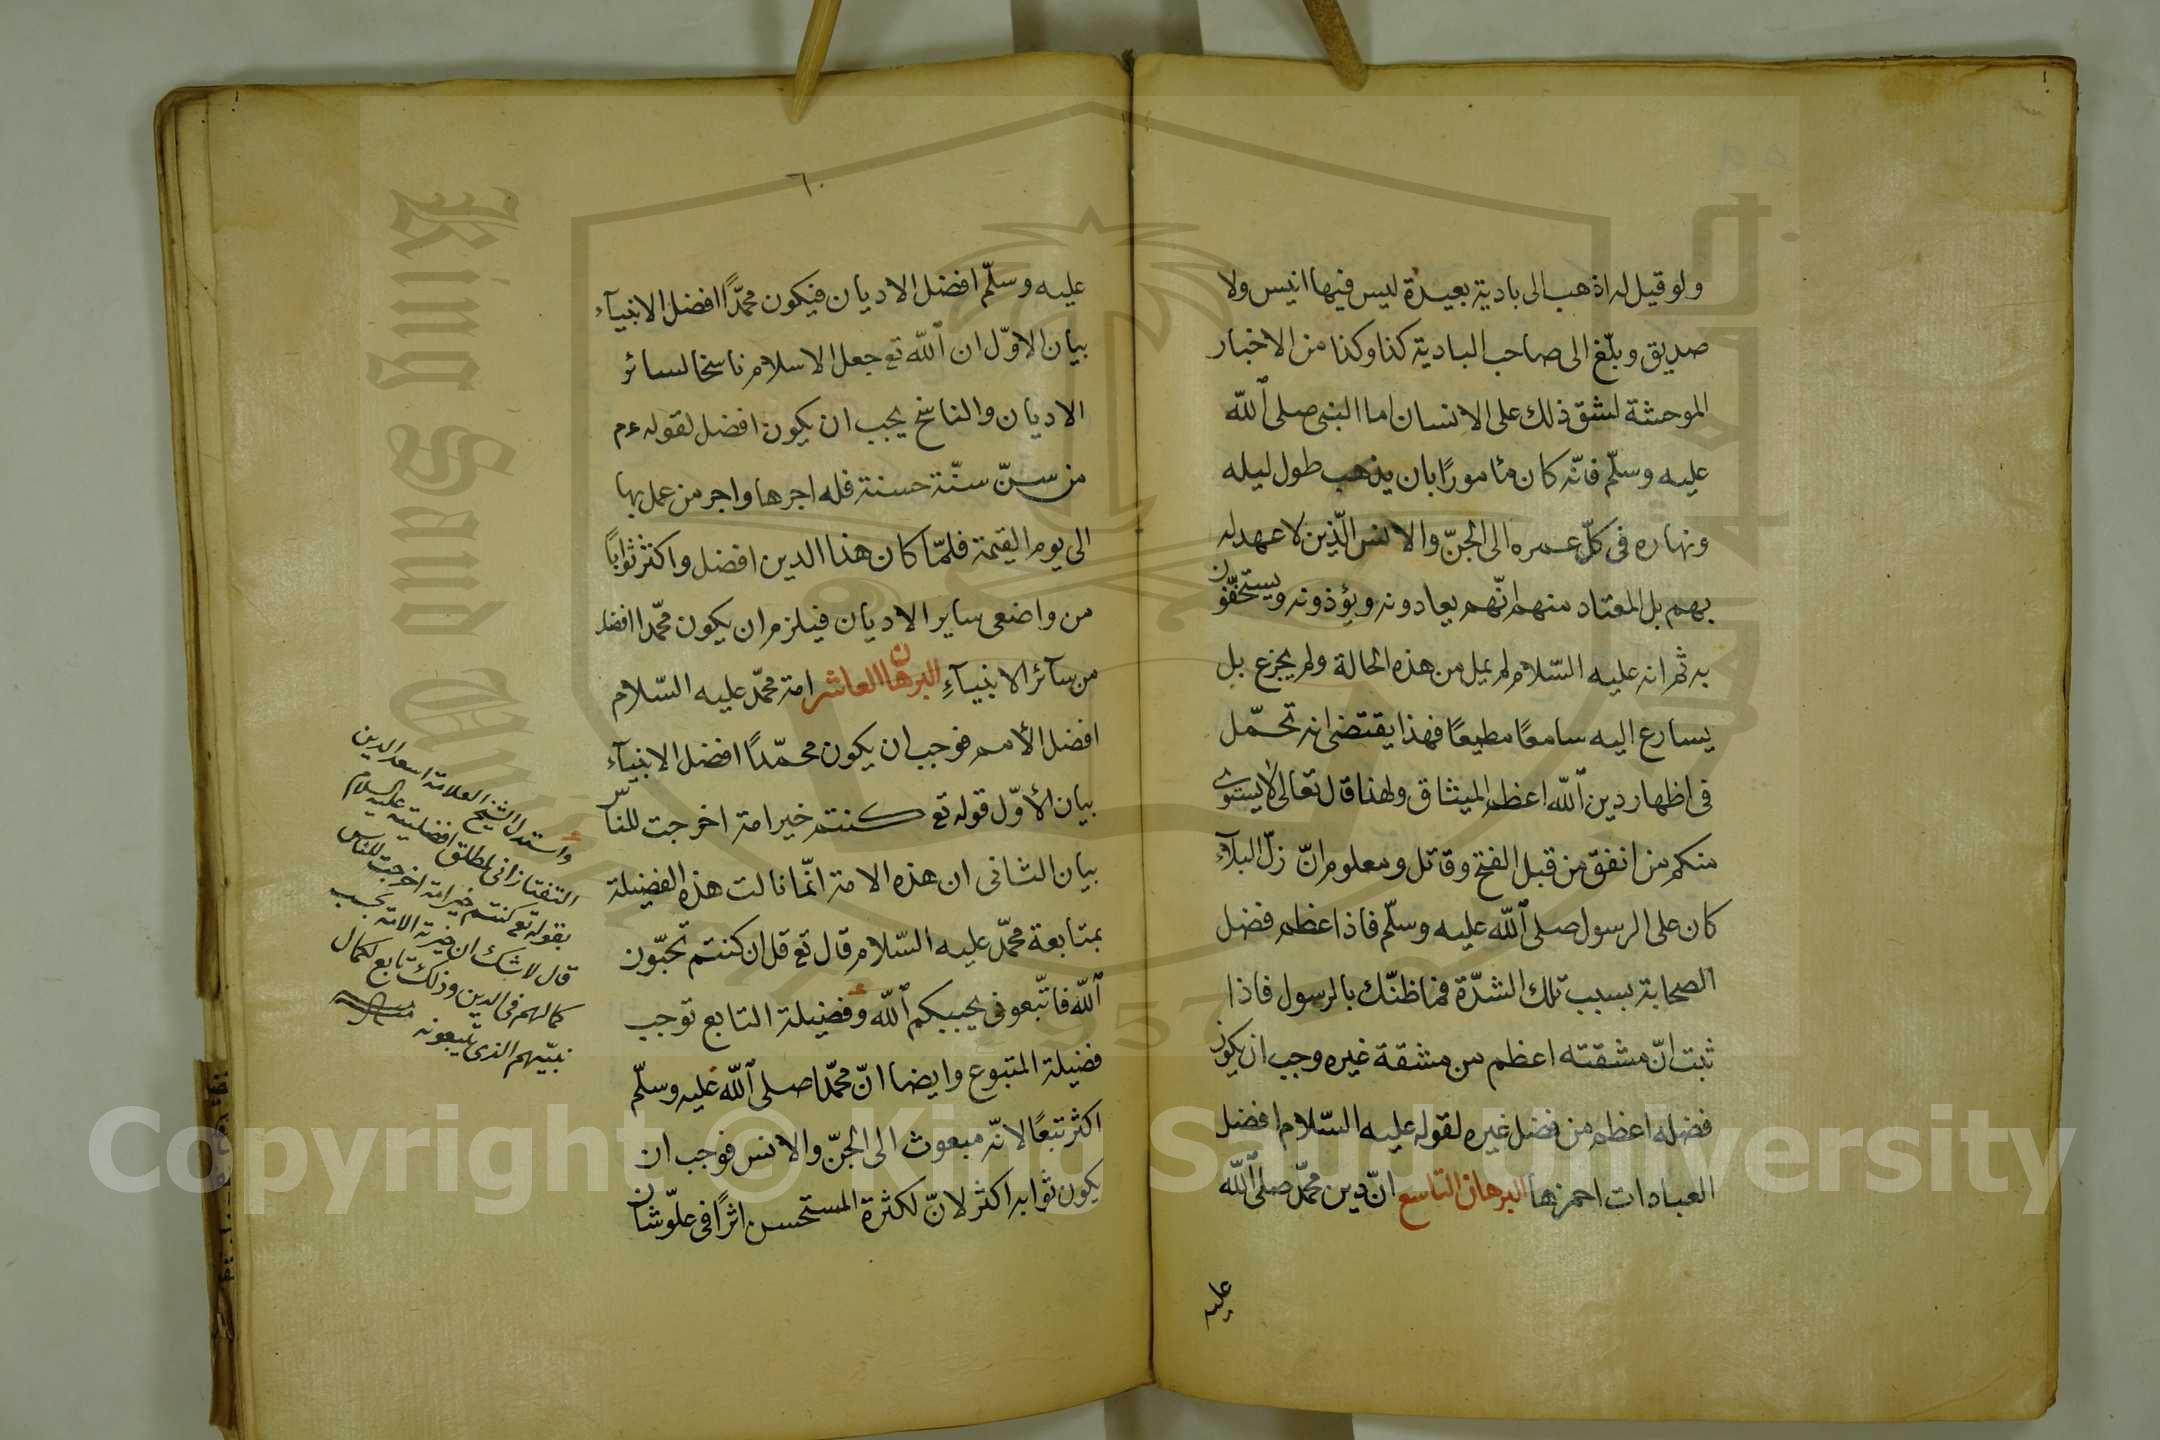 ولو قيل له اذهب الى بادية بعيدة ليس فيها انيس ولا
صديق وبلّغ الى صاحب البادية كذا وكذا من الاخبار
الموحشة لشق ذلك على الانسان اما النبى صلى الله
عليه وسلّم فانّه كان مأمورًا بان يذهب طول ليله
ونهاره فى كلّ عمره الى الجنّ والانس الّذين لا عهد له
بهم بل المعتاد منهم انّهم يعادونه ويؤذونه ويستخفّون
به ثم انه عليه السّلام لم يمل من هذه الحالة ولم يجزع بل
يسارع اليه سامعًا مطيعًا فهذا يقتضى انه تحمّل
فى اظهار دين الله اعظم الميثاق ولهذا قال تعالى لا يستوى
منكم من انفق من قبل الفتح وقاتل ومعلوم انّ زلّ البلاء
كان على الرسول صلى الله عليه وسلّم فاذا اعظم فضل
الصحابة بسبب تلك الشدّة فما ظنّك بالرسول فاذا
ثبت انّ مشقته اعظم من مشقة غيره وجب ان يكون
فضله اعظم من فضل غيره لقوله عليه السّلام افضل
العبادات احمزها البرهان التاسع انّ دين محمّد صلى الله
عليه
٦٠
عليه وسلّم افضل الاديان فيكون محمّدًا افضل الانبيآء
بيان الاوّل ان الله تع جعل الاسلام ناسخا لسائر
الاديان والناسخ يجب ان يكون افضل لقوله عم
من سنّ سنّة حسنة فله اجرها واجر من عمل بها
الى يوم القيمة فلمّا كان هذا الدين افضل واكثر ثوابًا
من واضعى ساير الاديان فيلزم ان يكون محمّدا افضل
من سآئر الانبيآء البرهان العاشر امة محمّد عليه السّلام
افضل الأمم فوجب ان يكون محمّدًا افضل الانبيآء
بيان الأوّل قوله تع كنتم خير امة اخرجت للناس
بيان الثانى ان هذه الامة انّما نالت هذه الفضيلة
بمتابعة محمّد عليه السّلام قال تع قل ان كنتم تحبّون
الله فاتّبعونى يحببكم الله وفضيلة التابع توجب
فضيلة المتبوع وايضا انّ محمّدا صلى الله عليه وسلّم
اكثر تبعًا لانّه مبعوث الى الجنّ والانس فوجب ان
يكون ثوابه اكثر لانّ لكثرة المستحسن اثرًا فى علوّ شان
واستدل الشيخ العلامة اسعد الدين
التفتازانى لمطلق افضليته عليه السلام
بقوله تع كنتم خير امة اخرجت للناس
قال لا شك ان خيرية الامة بحسب
كمالهم فى الدين وذلك تابع لكمال
نبيّهم الذى يتبعونه
King Saud University
1957
Copyright © King Saud University